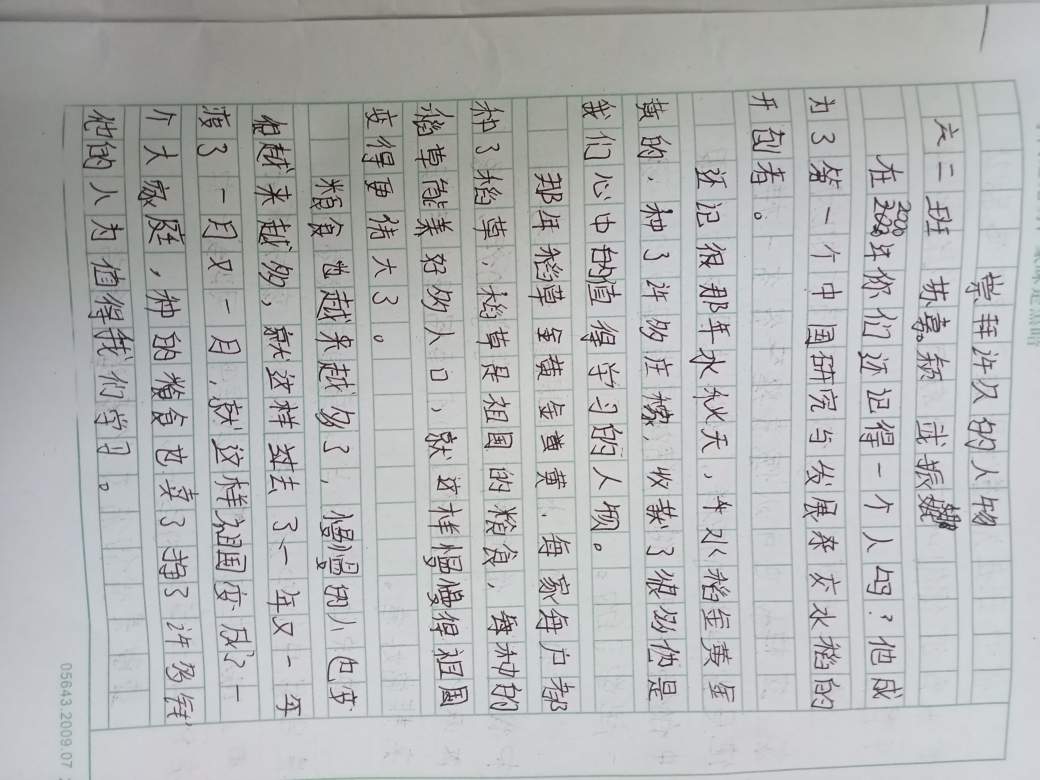 崇拜许久的人物
六二班 苏嘉 武振
2000
在2020年你们还记得一个人吗?他成
为了第一个中国研究与发展杂交水稻的
开创者。
还记很那年水秋天,水稻金黄金
黄的,种了许多庄稼,收获了很多他是
我们心中的值得学习的人物。
那年稻草金黄金黄黄,每家每户都
种了稻草,稻草是祖国的粮食,每种的
稻草能养好多人口,就这样慢慢得祖国
变得更伟大了。
粮食也越来越多了,慢慢的人也变
但越来越多,就这样过去了一年又一年
渡了一月又一月,就这样祖国变成了一
个大家庭,种的粮食也卖了挣了许多钱
他的人为值得我们学习。
05643.2009.07